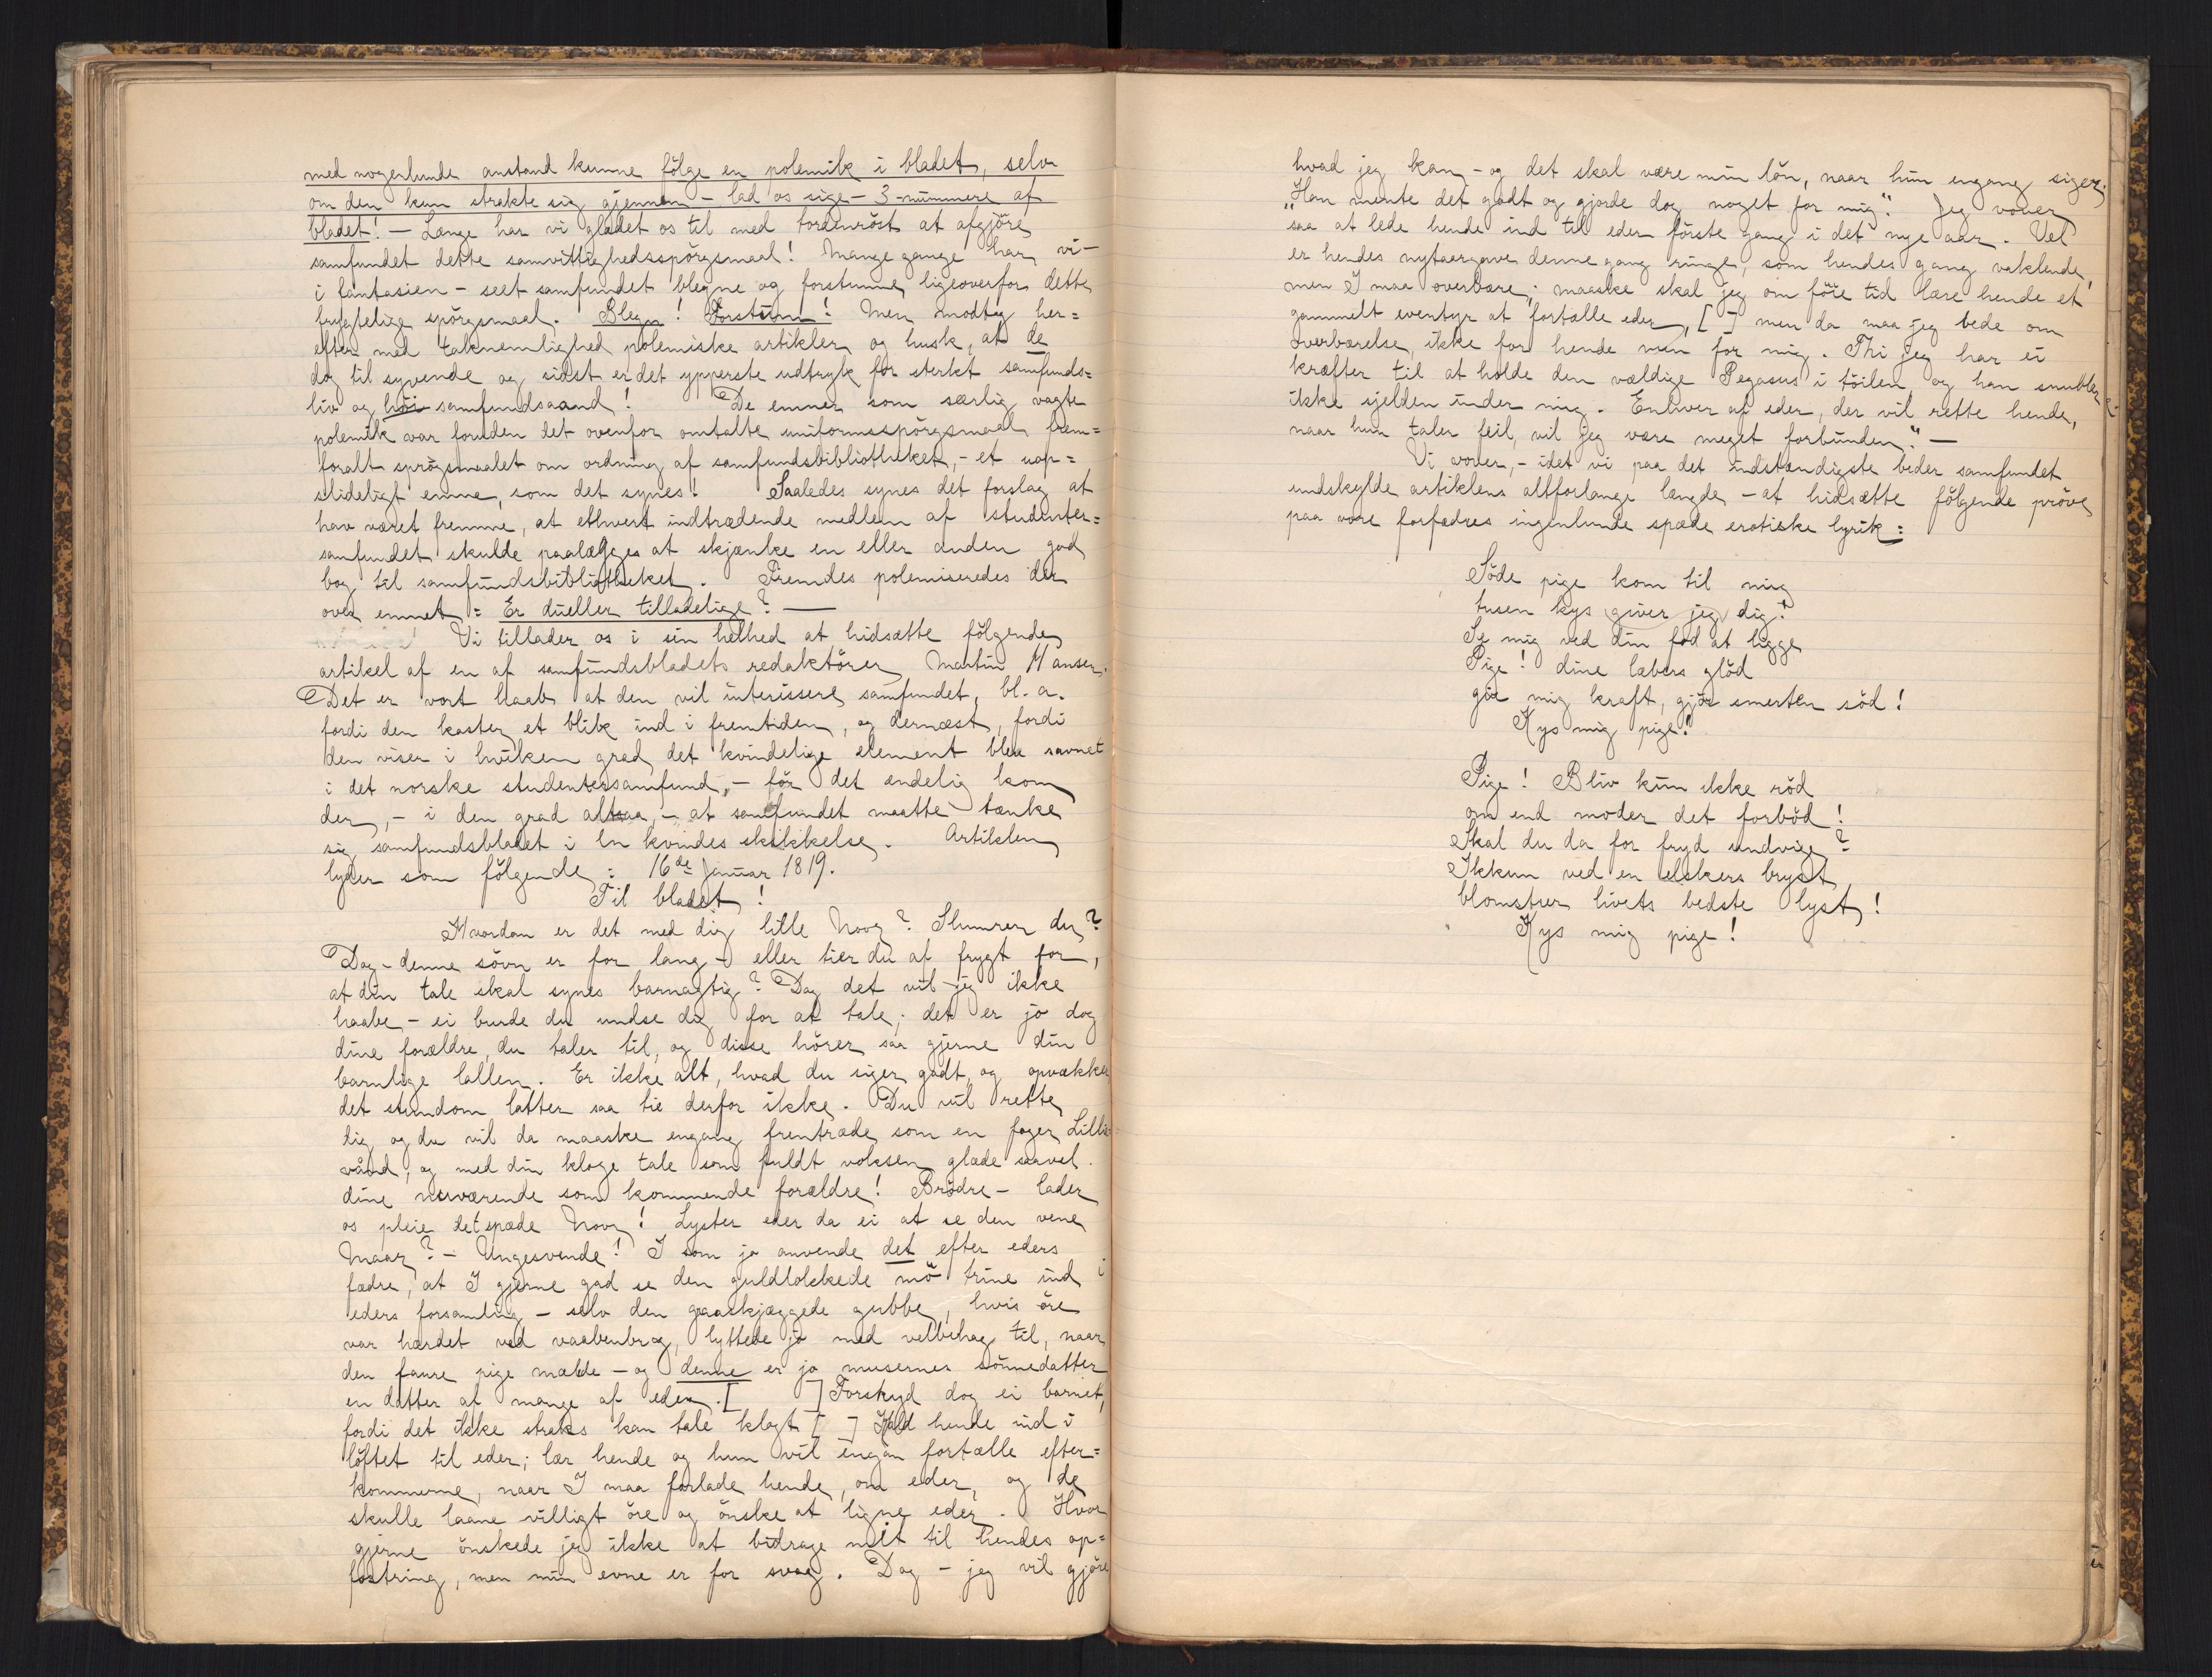 med nogenlunde anstand kunne følge en polemik i bladet, selv
om den kun strakte sig gjennem – lad os sige – 3 nummere af
bladet! – Længe har vi glædet os til med tordenrøst at afgjøre
samfundet dette samvittighedsspørgsmaal! Mange gange har vi –
i fantasien – seet samfundet blegne og forstumme ligeoverfor dette
frygtelige spørgsmaal. Blegn! Forstum! Men modtag her=
efter med taknemlighed polemiske artikler og husk, at de
dog til syvende og sidst er det ypperste udtryk for sterkt samfunds=
liv og høi samfundsaand! De emner som særlig vagte
polemik var foruden det ovenfor omtalte uniformsspørgsmaal frem=
foralt sprøgsmaalet om ordning af samfundsbibliotheket, – et uop=
slideligt emne, som det synes! Saaledes synes det forslag at
hav været fremme, at ethvert indtrædende medlem af studenter=
samfundet skulde paalægges at skjænke en eller anden god
bog til samfundsbibliotheket. Fremdes polemiseredes der
over emnet: Er dueller tilladelige? –
Vi tillader os i sin helhed at hidsætte følgende
artikel af en af samfundsbladets redaktører Martin Hansen.
Det er vort haab at den vil interissere samfundet, bl. a.
fordi den kaster et blik ind i fremtiden, og dernæst, fordi
den viser i hvilken grad det kvindelige element blev savnet
i det norske studentersamfund, – før det endelig kom
der, – i den grad altsaa, – at samfundet maatte tænke
sig samfundsbladet i en kvindes skikkelse. Artiklen
lyder som følgende: 16de Januar 1819.
Til bladet!
Hvordan er det med dig lille Noor? Slumrer du?
Dog – denne søvn er for lang – eller tier du af frygt for,
at din tale skal synes barnagtig? Dog det vil jeg ikke
haabe – ei burde du undse dig for at tale; det er jo dog
dine forældre, du taler til, og disse hører saa gjerne din
barnlige lallen. Er ikke alt, hvad du siger godt, og opvækker
det stundom latter saa tie derfor ikke. Du vil rette
dig og du vil da maaske engang fremtræde som en fager Lillie
vånd, og med din kloge tale som fuldt voksen glæde saavel
dine nærværende som kommende forældre! Brødre – lader
os pleie det spæde Noor! Lyster eder da ei at se den vene
Maar? – Ungesvende! I som jo anvende det efter eders
fædre, at I gjerne gad se den guldlokkede mø trine ind i
eders forsamling – selv den graaskjæggede gubbe, hvis øre
var hærdet ved vaabenbrag, lyttede jo med velbehag til, naar
den faure pige mælde – og denne er jo musernes sønnedatter
en datter af mange af eder. [ ] Forskyd dog ei barnet,
fordi det ikke straks kan tale klogt [ ] Hold hende ind i
løftet til eder; lær hende og hun vil engan fortælle efter=
kommerne, naar I maa forlade hende, om eder, og de
skulle laane villigt øre og ønske at ligne eder. Hvor
gjerne ønskede jeg ikke at bidrage mit til hendes op=
fostring, men min evne er for svag. Dog – jeg vil gjøre
hvad jeg kan – og det skal være min løn, naar hun engang siger;
"Han mente det godt og gjorde dog noget for mig". Jeg vover
saa at lede hende ind til eder første gang i det nye aar. Vel
er hendes nytaarsgave denne gang ringe, som hendes gang vaklende,
men I maa overbære; maaske skal jeg om føie tid lære hende et
gammelt eventyr at fortælle eder, [ ] men da maa jeg bede om
overbærelse, ikke for hende men for mig. Thi jeg har ei
kræfter til at holde den vældige Pegasus i tøilen og han snubler
ikke sjelden under mig. Enhver af eder, der vil rette hende,
naar hun taler feil, vil jeg være meget forbunden." –
Vi vover, – idet vi paa det indstændigste beder samfundet
undskylde artiklens altforlange længde – at hidsætte følgende prøve
paa vore forfædres ingenlunde spæde erotiske lyrik:
Søde pige kom til mig
tusen kys giver jeg dig!
Se mig ved din fod at ligge
Pige! dine læbers glød
gir mig kraft, gjør smerten sød!
Kys mig pige!
Pige! Bliv kun ikke rød
om end moder det forbød!
Skal du da for fryd undvige?
Ikkun ved en elskers bryst
blomstrer livets bedste lyst!
Kys mig pige!